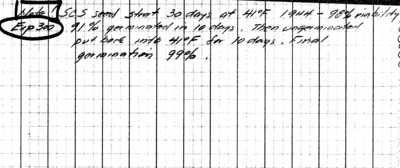 Note! SCS seed start 30 days at 41°F 1944 - 98% viability
Exp 3on 91% germinated in 10 days. Then ungerminated
put back into 41°F for 10 days. Final
germination 99%.